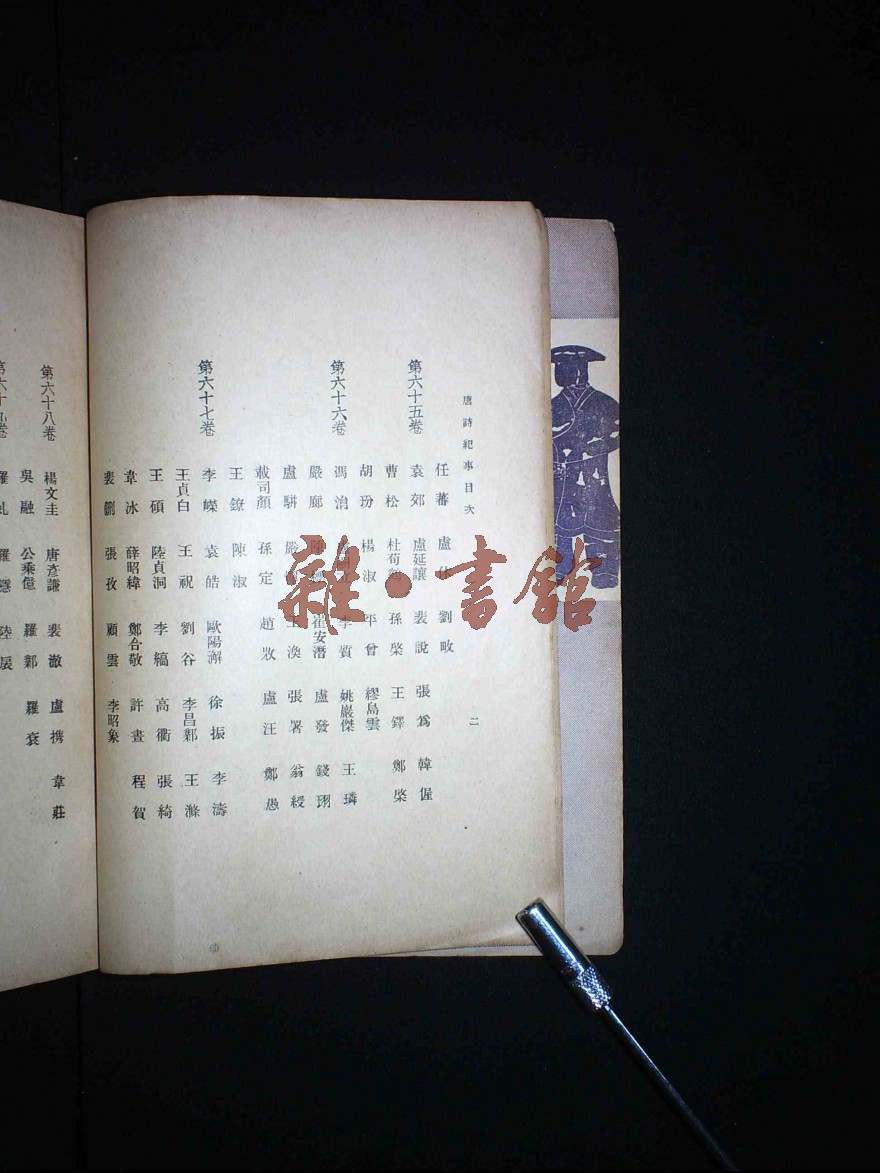 唐詩紀事目次
二
任蕃 盧 劉畋 張爲 韓偓
第六十五卷 袁郊 盧延讓 裴說
曹松 杜荀鶴 孫棨 王鐸 鄭棨
胡玢 楊淑 平曾 繆島雲
第六十六卷 馮涓 李質 姚巖傑 王璘
嚴鄖 崔安潛 盧發 錢珝
盧駢 嚴 王渙 張署 翁綬
載司顏 孫定 趙牧 盧汪 鄭愚
王鐐 陳淑
第六十七卷 李嶸 袁皓 歐陽澥 徐振 李濤
王貞白 王祝 劉谷 李昌鄴 王滌
王碩 陸貞洞 李縞 高衢 張綺
韋冰 薛昭緯 鄭合敬 許晝 程賀
裴劌 張孜 顧雲 李昭象
第六十八卷 楊文圭 唐彥謙 裴澈 盧攜 韋莊
吳融 公乘億 羅鄴 羅袞
第六十九卷 羅虬 羅隱 陸扆
雜·書館